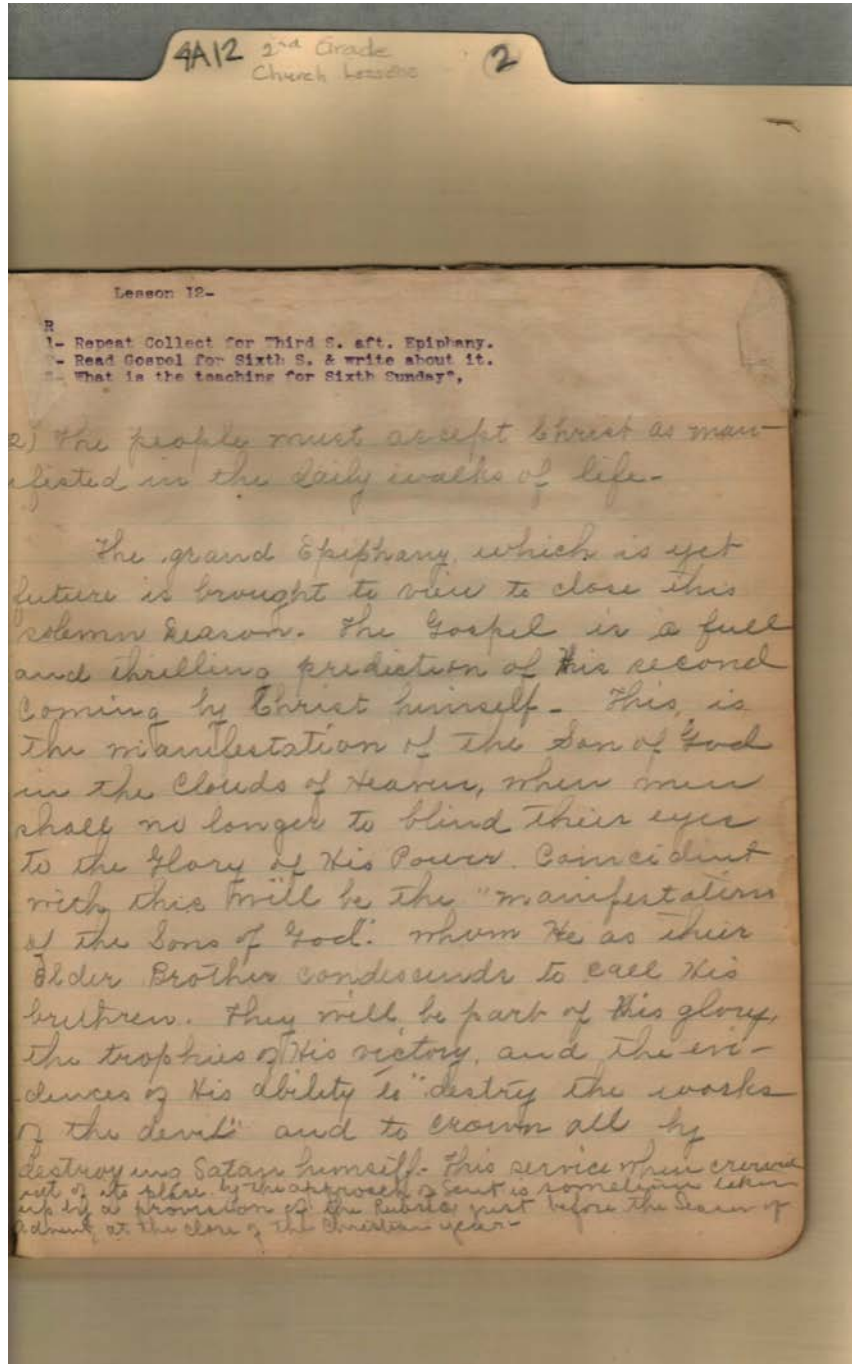 4A12 2nd Grade
Church Lessons
2
Lesson 12-
R
1- Repeat Collect for Third S. aft. Epiphany.
2- Read Gospel for Sixth S. & write about it.
3- What is the teaching for Sixth Sunday",
2) The people must accept Christ as man-
ifested in the daily walks of life-
The grand Epiphany, which is yet
future is brought to view to close this
solemn season. The Gospel is a full
and thrilling prediction of His second
Coming by Christ himself- This, is
the manifestation of the Son of God
in the Clouds of Heaven, when men
shall no longer to blind their eyes
to the Glory of His Power. Coincident
with this will be the "manifestation
of the Sons of God". whom He as their
Elder Brother condescends to call His
brethren. They will be part of His glory,
the trophies of His victory, and the evi-
dences of His ability to "destry the works
of the devil" and to crown all by
destroying Satan himself- This service when crowded
out of its place by the approach of Lent is sometimes taken
up by a provision of the Rubric just before the Season of
Advent, at the close of the Christian year-